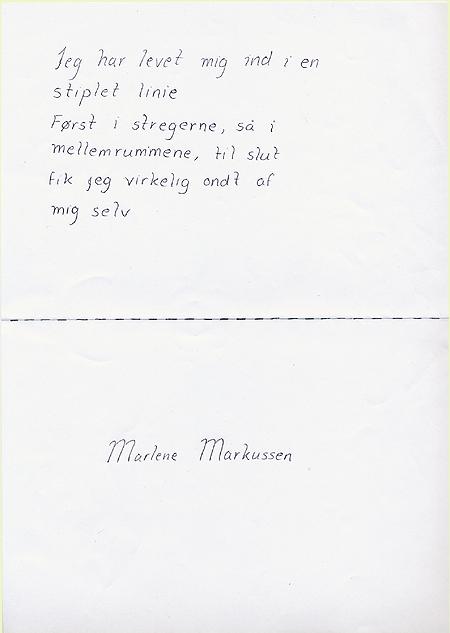 Jeg har levet mig ind i en
stiplet linie
Først i stregerne, så i
mellemrummene, til slut
fik jeg virkelig ondt af
mig selv
Marlene Markussen